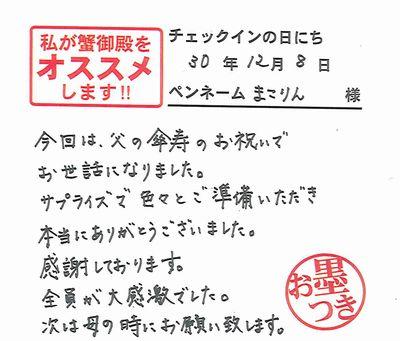 私が蟹御殿を
オススメ
します!!
チェックインの日にち
30年12月8日
ペンネーム まこりん 様
今回は、父の傘寿のお祝いで
お世話になりました。
サプライズで色々とご準備いただき
本当にありがとうございました。
感謝しております。
全員が大感激でした。
次は母の時にお願い致します。
お墨つき